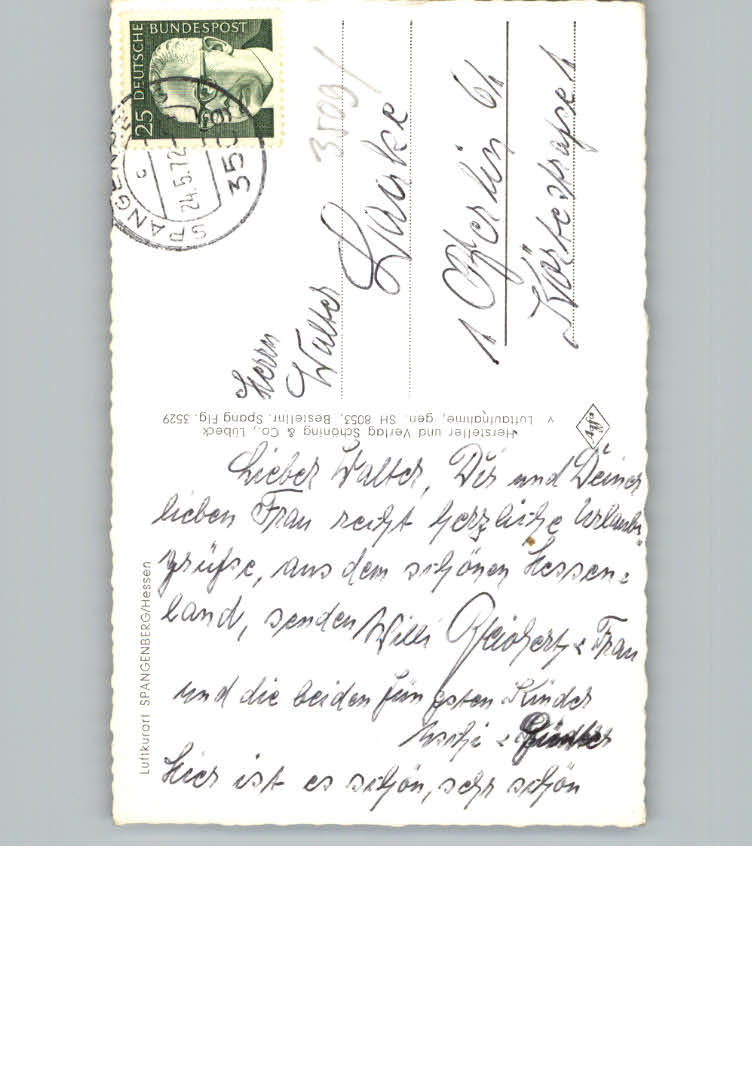 DEUTSCHE BUNDESPOST
25
SPANGENBERG
24.5.72
c
Herrn
Walter
1 Berlin 61
Körtestraße 4
Hersteller und Verlag Schöning & Co., Lübeck
v Luftaufnahme, gen. SH 8053, Bestellnr. Spang Flg. 3529
Agfa
Luftkurort SPANGENBERG/Hessen
Lieber Walter, Dir und Deiner
lieben Frau recht herzliche Urlaubs
grüße, aus dem schönen Hessen=
land, senden Willi & Frau
und die beiden jüngsten Kinder
Hier ist es schön, sehr schön